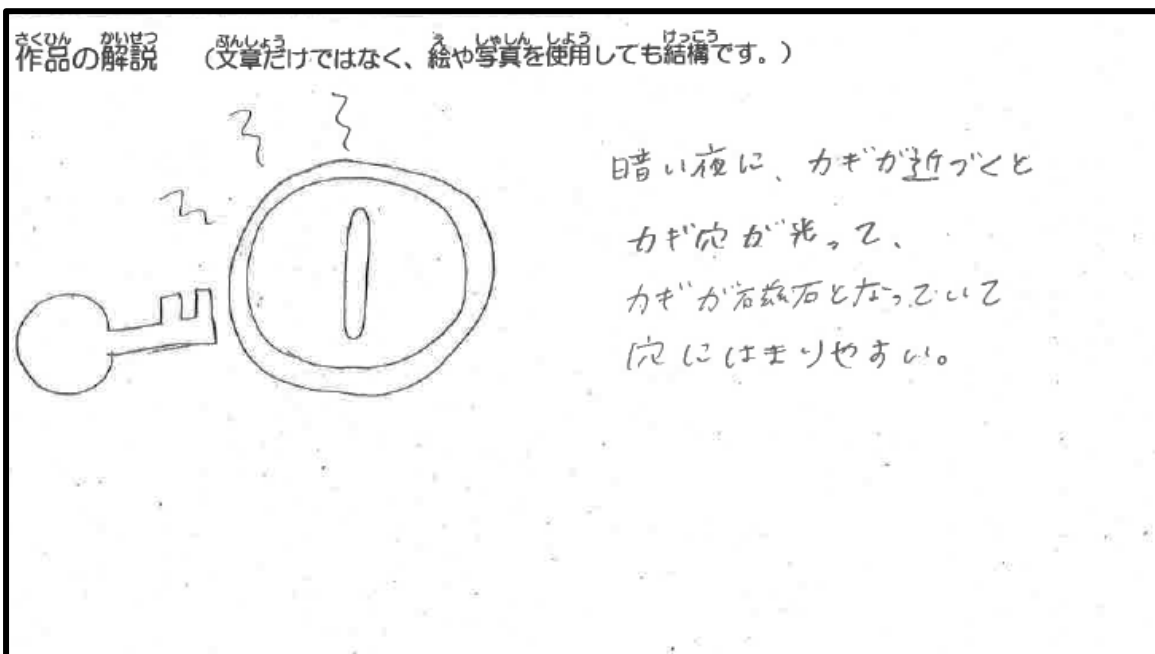 作品の解説 (文章だけではなく、絵や写真を使用しても結構です。)
暗い夜に、カギが近づくと
カギ穴が光って、
カギが磁石となっていて
穴にはまりやすい。